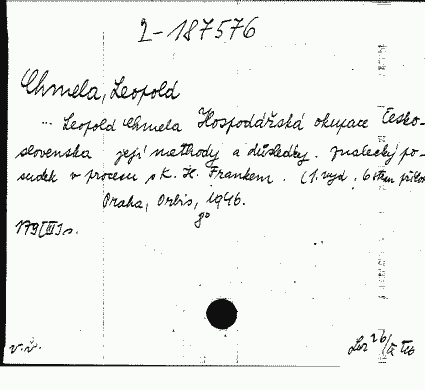 2-187576
Chmela, Leopold
... Leopold Chmela Hospodářská okupace Česko-
slovenska její methody a důsledky. Znalecký po-
sudek v procesu s K. H. Frankem. (1. vyd. 6 stran příloh
Praha, Orbis, 1946.
8°
179 [III] s.
v. v.
26/II